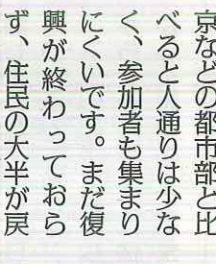 京などの都市部と比
べると人通りは少な
く、参加者も集まり
にくいです。まだ復
興が終わっておら
ず、住民の大半が戻